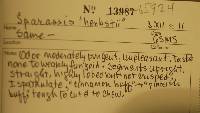 No 13987 65924
Sparassis "herbstii" 8 XII 11
Same- GSMNS
Odor moderately pungent, unpleasant. Taste
none to weakly fungoid. Segments upright,
straight, highly lobed but not crisped,
spathulate, "cinnamon buff" - "pinkish
buff" tough to cut to chew.